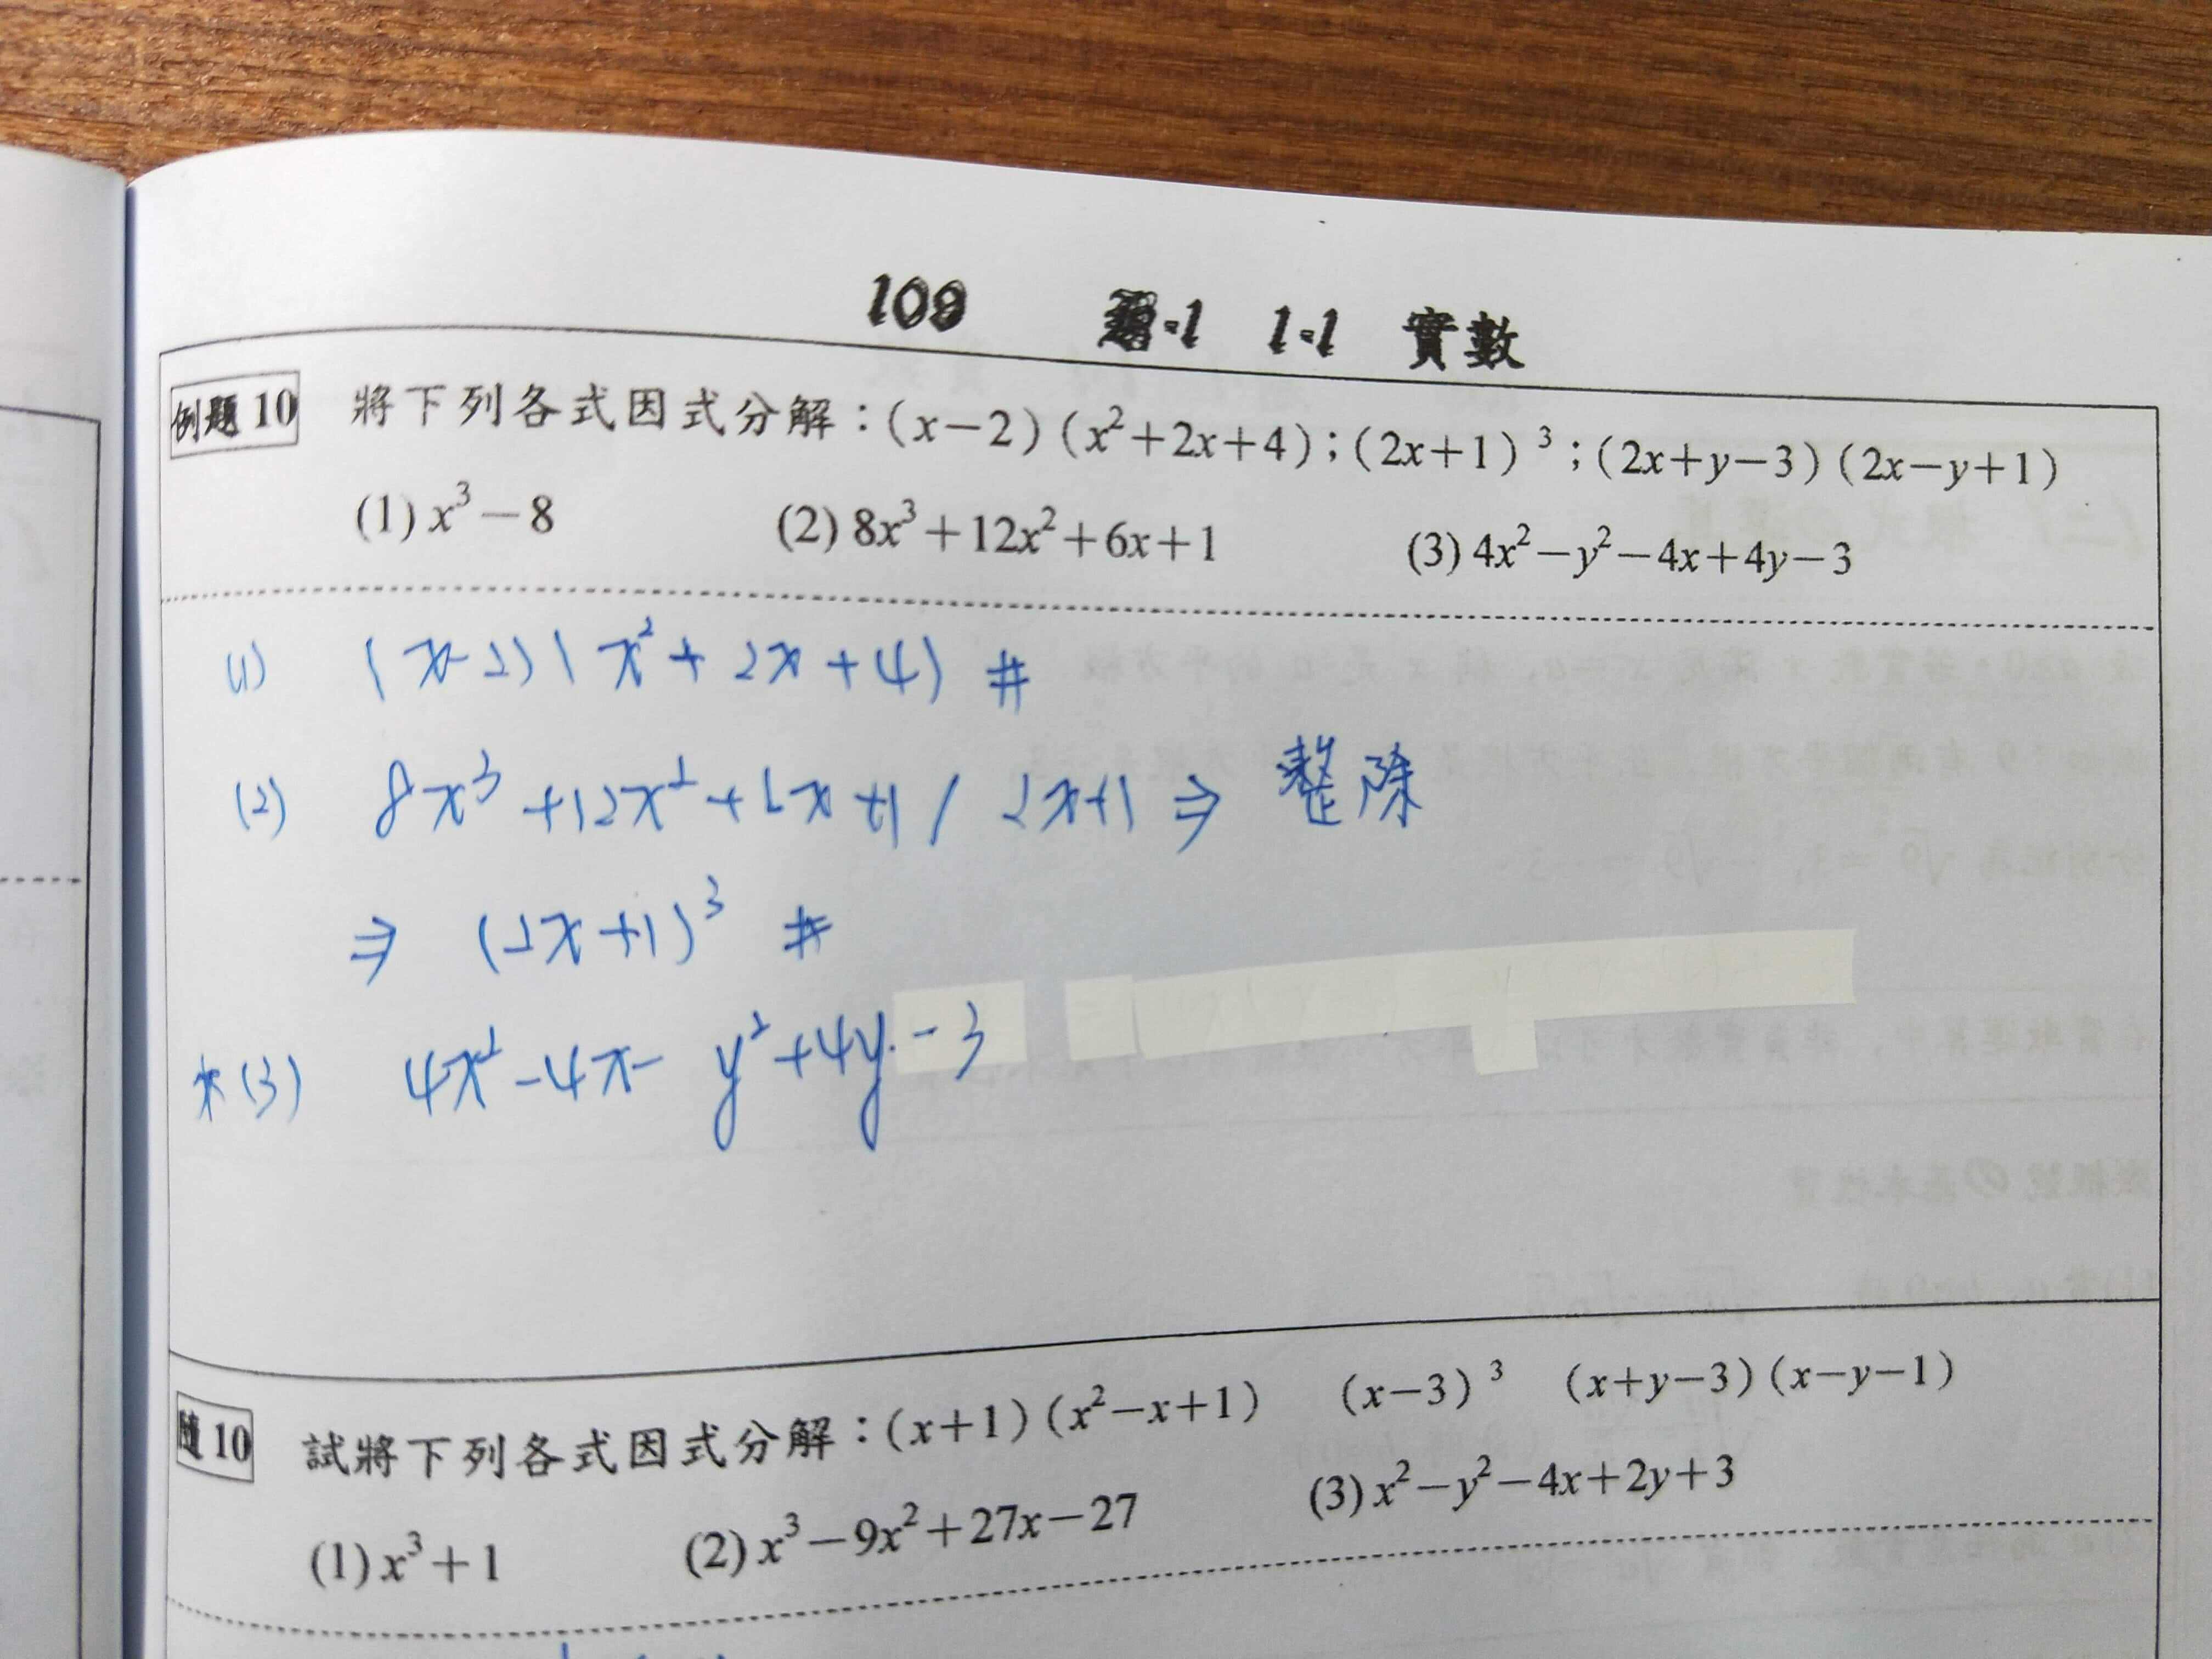 109 1-1 實數
例題10 將下列各式因式分解：(x−2)(x²+2x+4)；(2x+1)³；(2x+y−3)(2x−y+1)
(1) x³−8 (2) 8x³+12x²+6x+1 (3) 4x²−y²−4x+4y−3
(1) (x-2)(x²+2x+4) #
(2) 8x³+12x²+6x+1 / 2x+1 ⇒ 整除
⇒ (2x+1)³ #
*(3) 4x²-4x-y²+4y-3
隨10 試將下列各式因式分解：(x+1)(x²−x+1) (x−3)³ (x+y−3)(x−y−1)
(1) x³+1 (2) x³−9x²+27x−27 (3) x²−y²−4x+2y+3